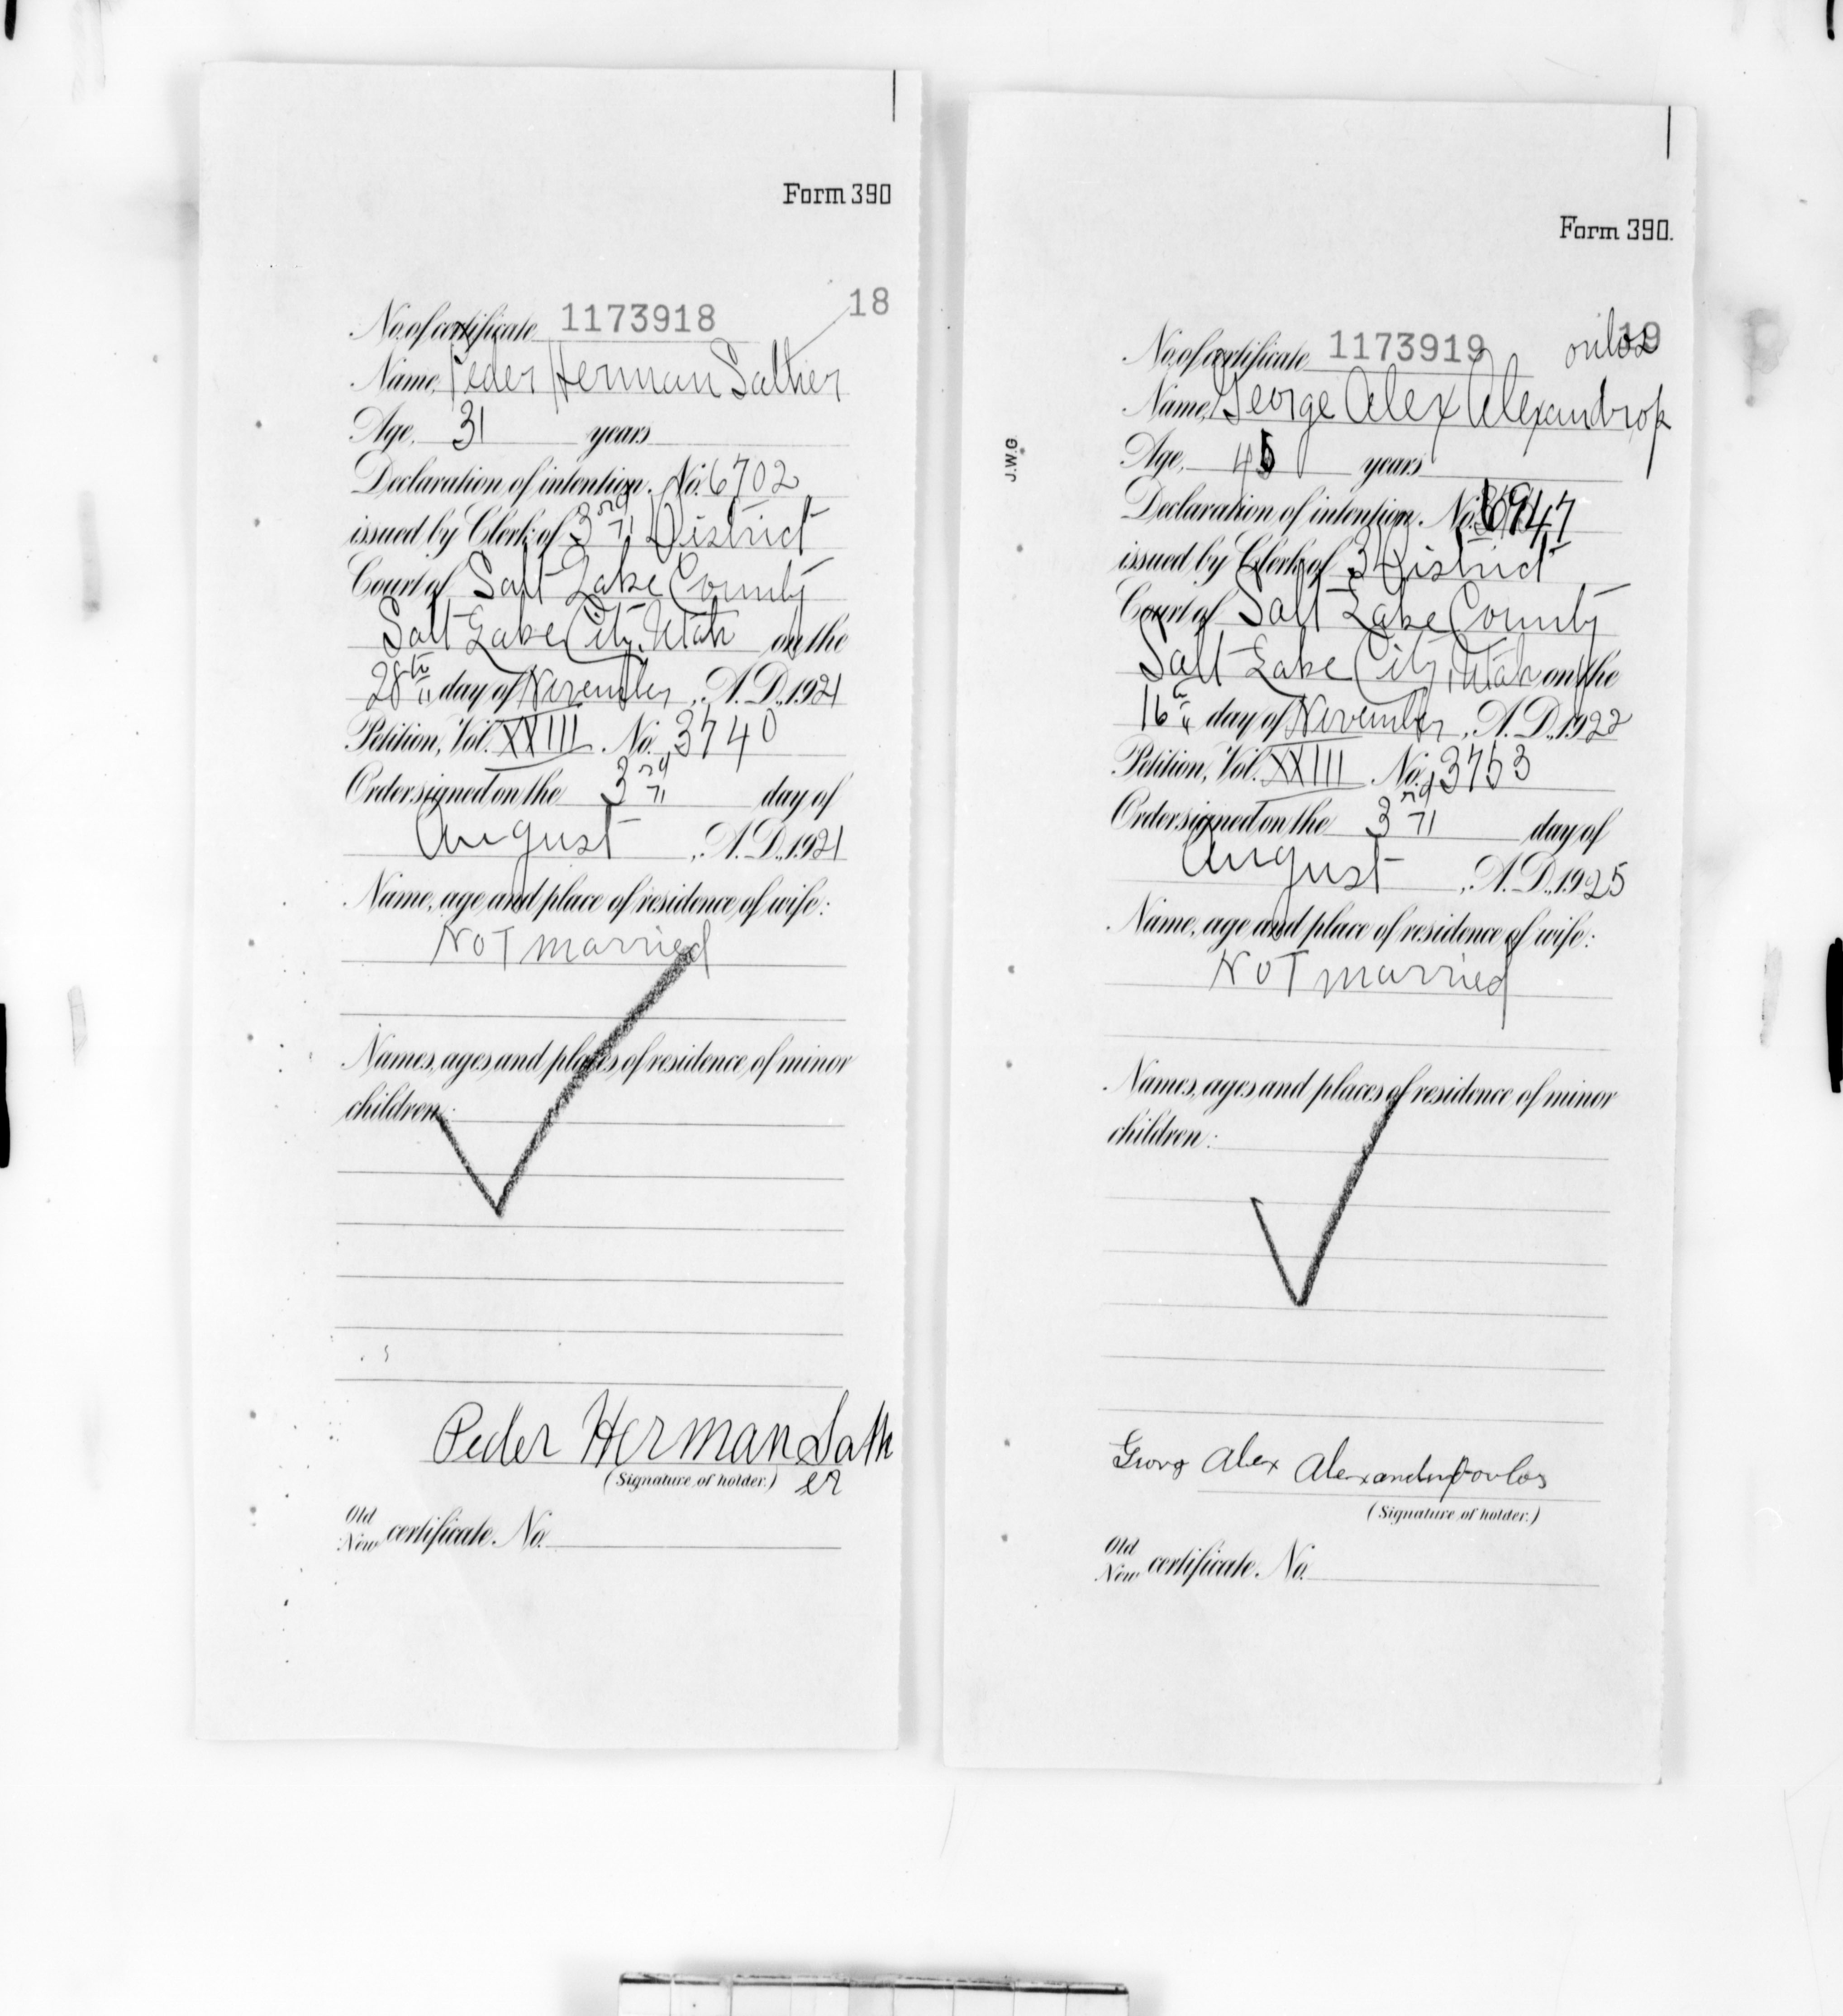 Form 390
18
No. of certificate 1173918
Name, Peder Herman Sather
Age, 31 years
Declaration of intention, No. 6702
issued by Clerk of 3rd District
Court of Salt Lake County
Salt Lake City, Utah on the
28th day of November, A.D., 1921
Petition, Vol. XXIII No. 3740
Order signed on the 3rd day of
August, A.D., 1921
Name, age, and place of residence of wife:
NoT married
Names, ages, and places of residence of minor
children:
Peder Herman Sath
er
(Signature of holder.)
Old
New certificate. No.
Form 390.
19
oulos
No. of certificate 1173919
Name, George Alex Alexandrop
J.W.G.
Age, years
Declaration of intention, No.
issued by Clerk of 3 District
Court of Salt Lake County
Salt Lake City, Utah on the
16th day of November, A.D., 1922
Petition, Vol. XXIII No. 3753
Order signed on the 3rd day of
August, A.D., 1925
Name, age, and place of residence of wife:
NoT married
Names, ages and places of residence of minor
children:
Alex Alexandropoulos
(Signature of holder.)
Old
New certificate. No.